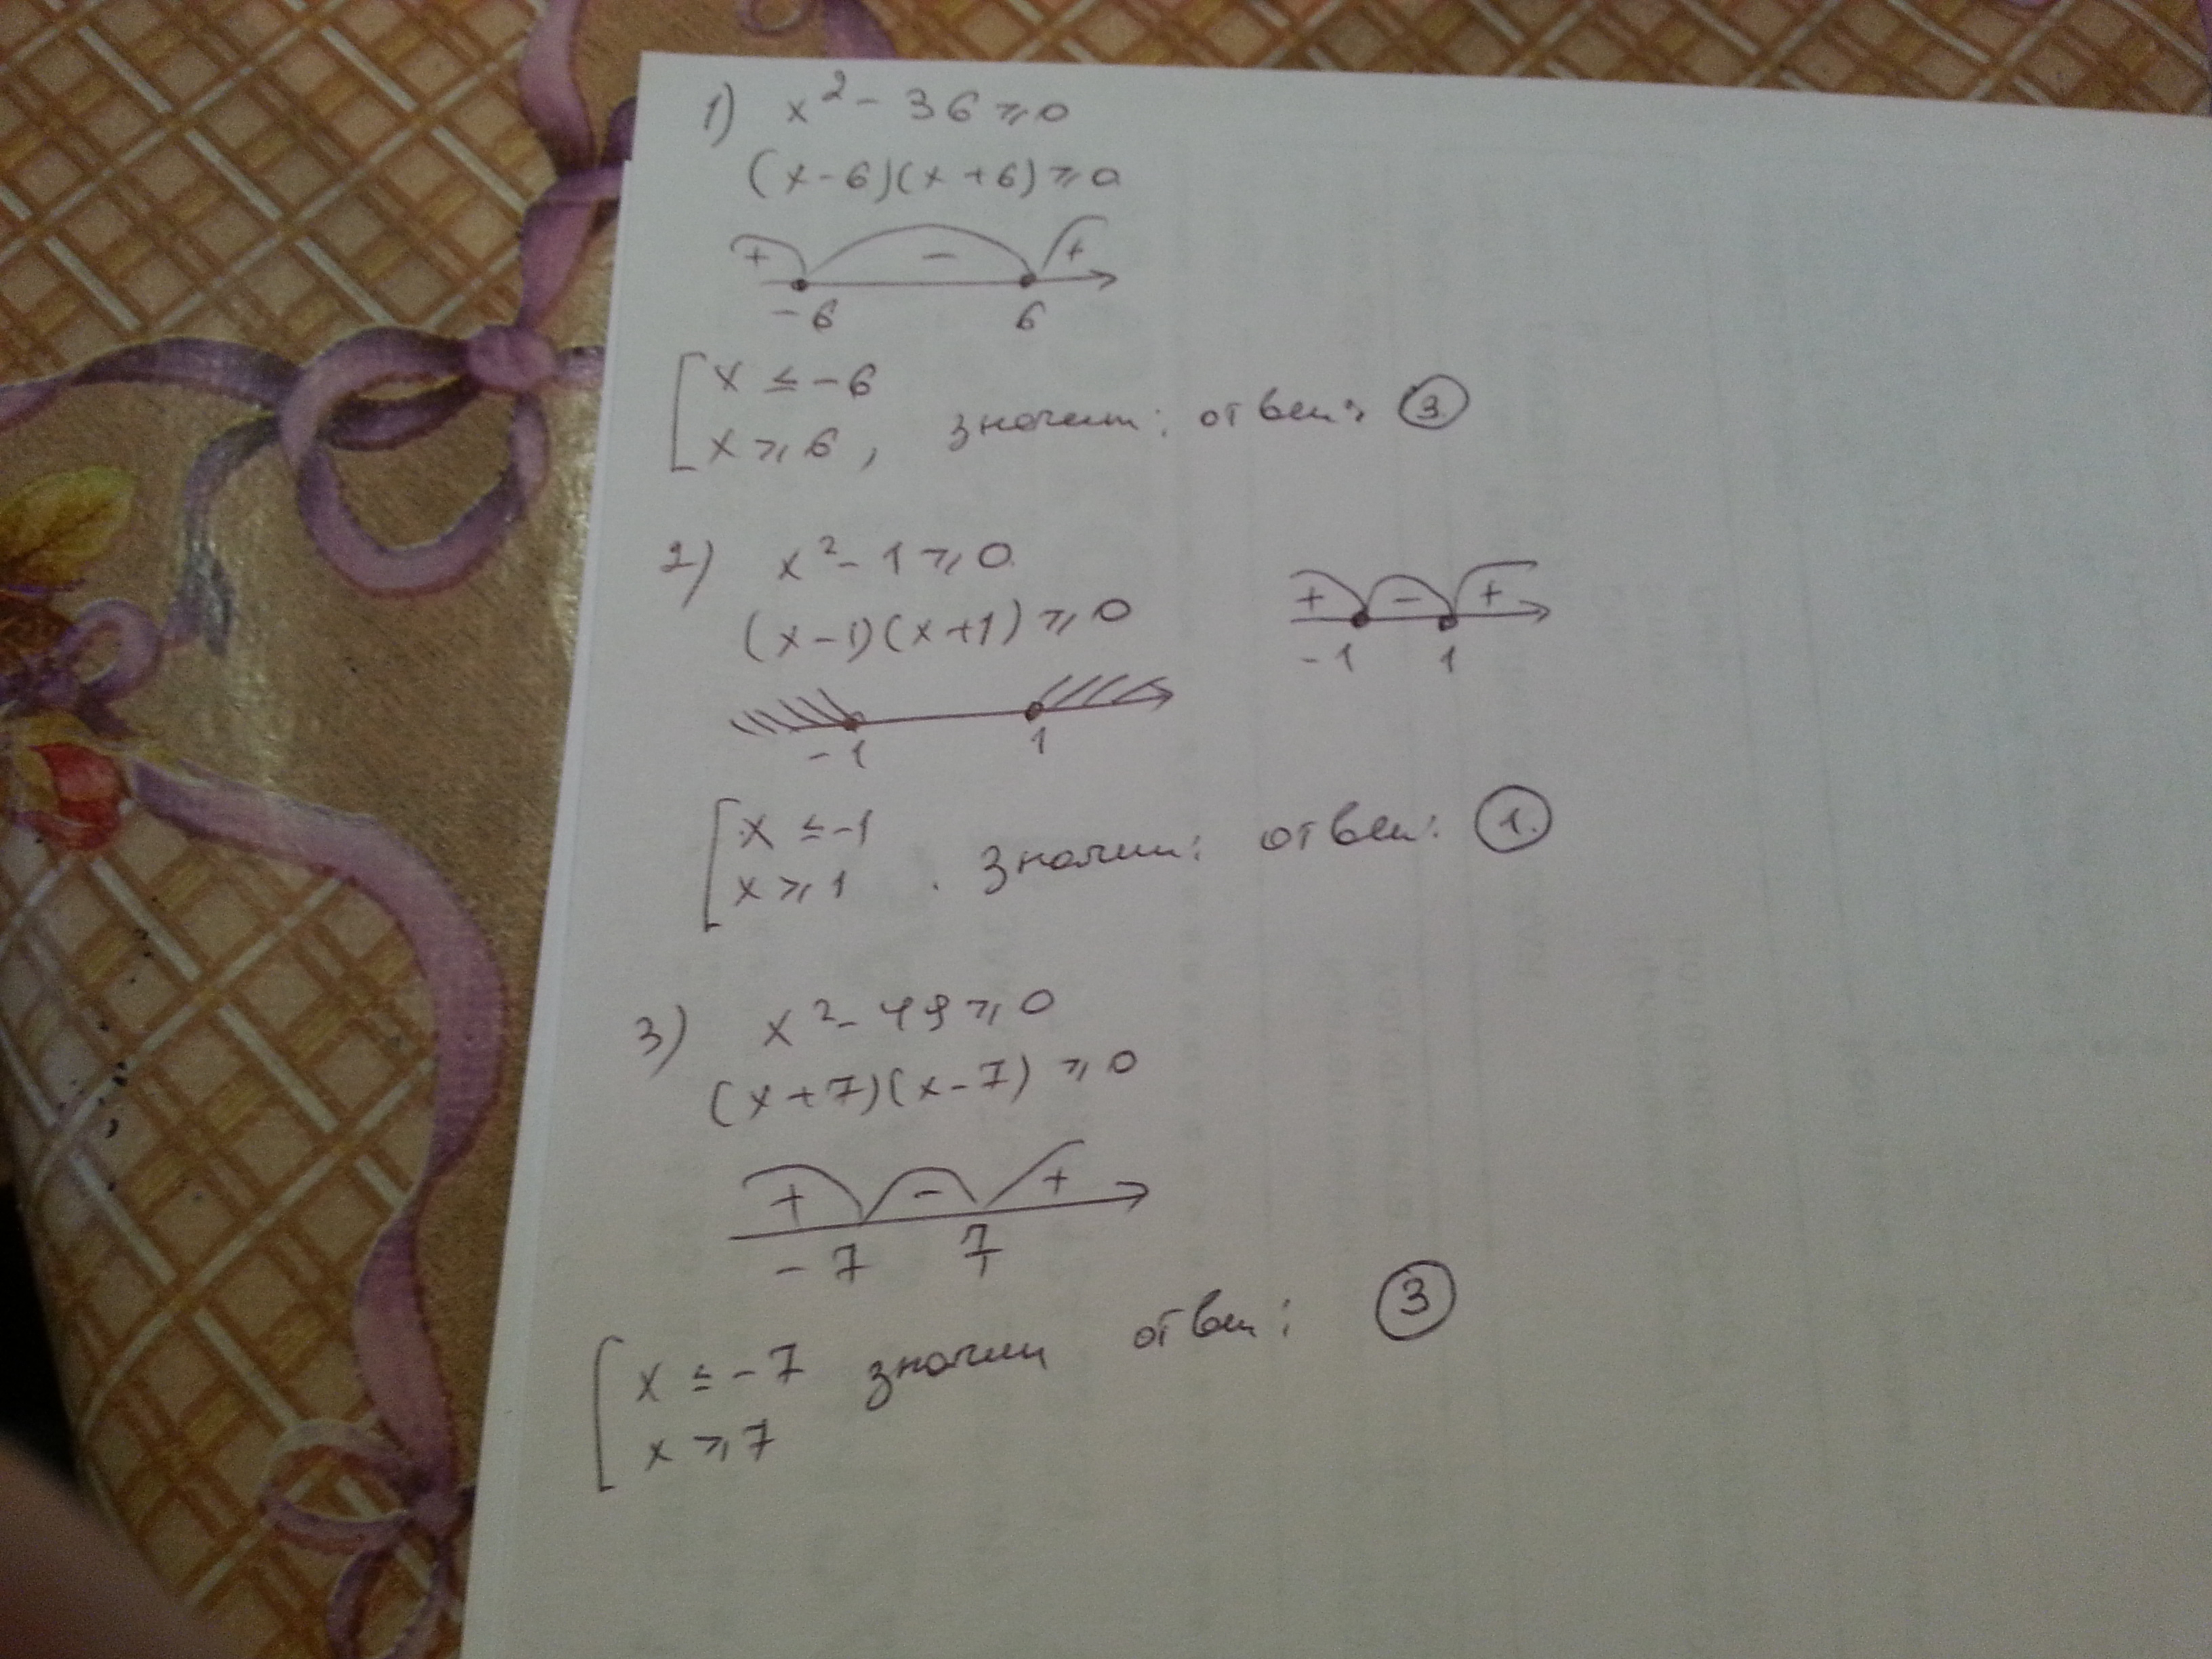 1) x² - 36 ⩾ 0
(x-6)(x+6) ⩾ 0
+ - +
-6 6
x ≤ -6
x ⩾ 6, значит: ответ: 3
2) x² - 1 ⩾ 0
(x-1)(x+1) ⩾ 0
+ - +
-1 1
-1 1
x ≤ -1
x ⩾ 1 . значит: ответ: 1.
3) x² - 49 ⩾ 0
(x+7)(x-7) ⩾ 0
+ - +
-7 7
x ≤ -7 значит ответ: 3
x ⩾ 7